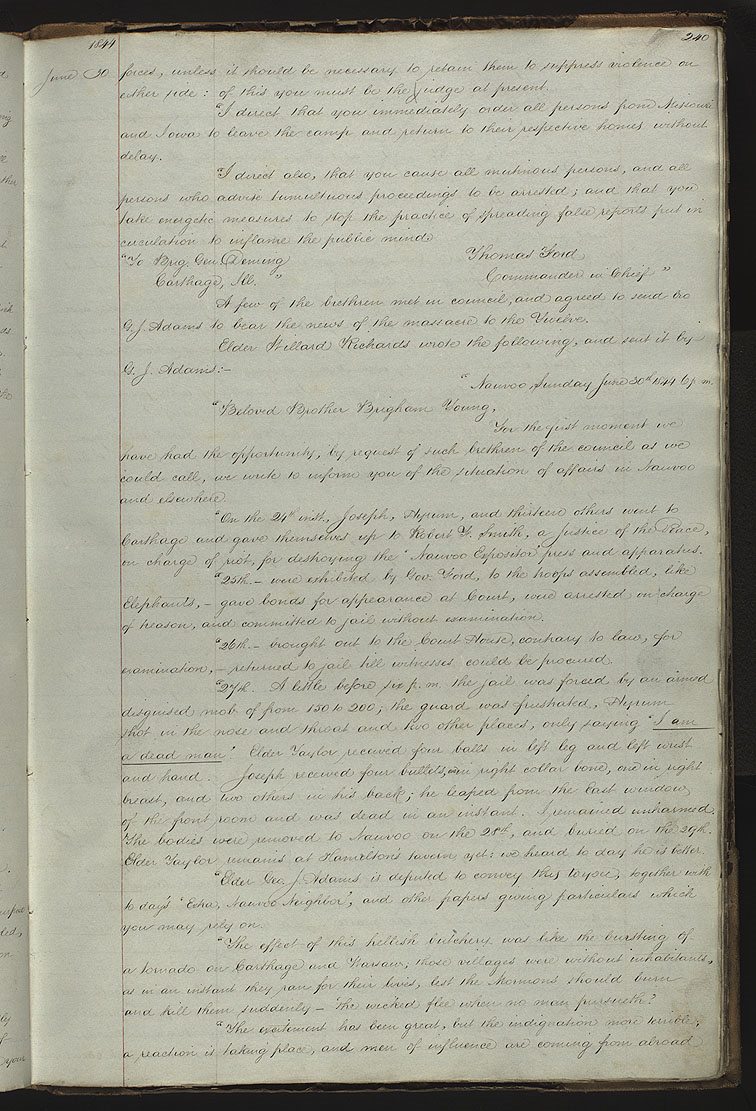 1844 240
June 30 forces, unless it should be necessary to retain them to suppress violence on
either side: of this you must be the judge at present.
"I direct that you immediately order all persons from Missouri
and Iowa to leave the camp and return to their respective homes without
delay.
"I direct also, that you cause all mutinous persons, and all
persons who advise tumultuous proceedings to be arrested; and that you
take energetic measures to stop the practice of spreading false reports put in
circulation to inflame the public mind.
"To Brig. Gen. Deming Thomas Ford
Carthage, Ill." Commander in Chief"
A few of the brethren met in council, and agreed to send bro
G. J. Adams to bear the news of the massacre to the Twelve.
Elder Willard Richards wrote the following, and sent it by
G. J. Adams:—
"Nauvoo Sunday June 30th 1844 6 p.m.
"Beloved Brother Brigham Young,
For the first moment we
have had the opportunity, by request of such brethren of the council as we
could call, we write to inform you of the situation of affairs in Nauvoo
and elsewhere.
"On the 24th inst., Joseph, Hyrum, and thirteen others went to
Carthage and gave themselves up to Robert F. Smith, a Justice of the Peace,
on charge of riot, for destroying the Nauvoo Expositor press and apparatus.
"25th.— were exhibited by Gov. Ford, to the troops assembled, like
Elephants,— gave bonds for appearance at Court, were arrested on charge
of treason, and committed to jail without examination.
"26th.— brought out to the Court House, contrary to law, for
examination,— returned to jail till witnesses could be procured.
"27th. A little before six p.m. the jail was forced by an armed
disguised mob of from 150 to 200; the guard was frustrated, Hyrum
shot in the nose and throat and two other places, only saying "I am
a dead man." Elder Taylor received four balls in left leg and left wrist
and hand. Joseph received four bullets, one in right collar bone, one in right
breast, and two others in his back; he leaped from the east window
of the front room and was dead in an instant. I remained unharmed.
The bodies were removed to Nauvoo on the 28th, and buried on the 29th.
Elder Taylor remains at Hamilton's tavern yet: we heard to day he is better.
"Elder Geo. J. Adams is deputed to convey this to you, together with
to day's "Extra, Nauvoo Neighbor", and other papers giving particulars which
you may rely on.
"The effect of this hellish butchery was like the bursting of
a tornado on Carthage and Warsaw, those villages were without inhabitants,
as in an instant they ran for their lives, lest the Mormons should burn
and kill them suddenly— "the wicked flee when no man pursueth"!
"The excitement has been great, but the indignation more terrible;
a reaction is taking place, and men of influence are coming from abroad